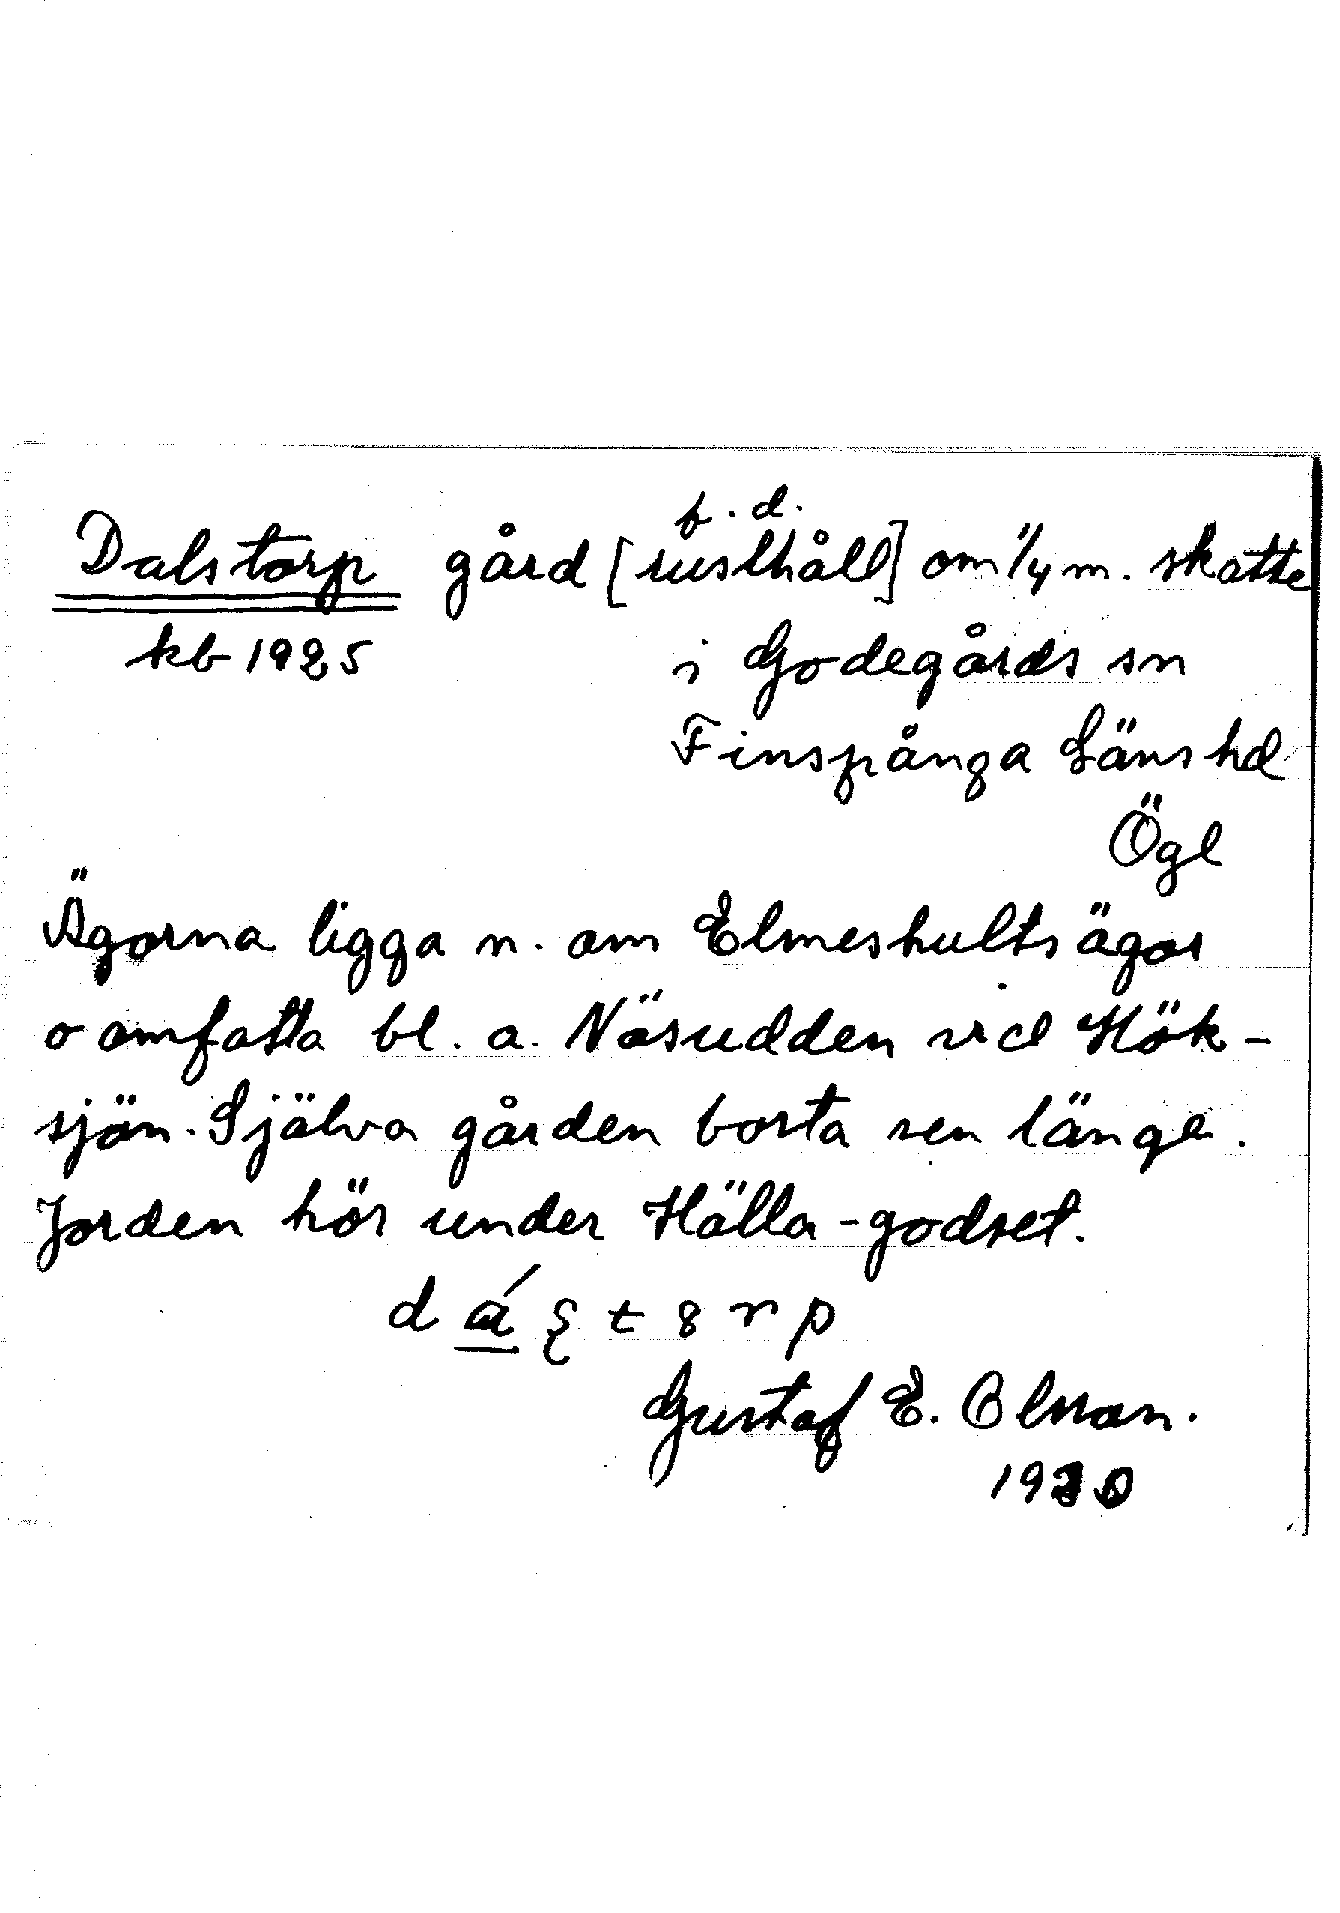 f. d.
Dalstorp gård [rusthåll] om 1/4 m. skatte
kb 1925 i Godegårds sn
Finspånga Läns hd
Ögl
Ägorna ligga n. om Elmeshults ägor
o omfatta bl. a. Näsudden vid Hök-
sjön. Själva gården borta sen länge.
Jorden hör under Hälla-godset.
d t 8 r p
Gustaf E. Olsson.
1930